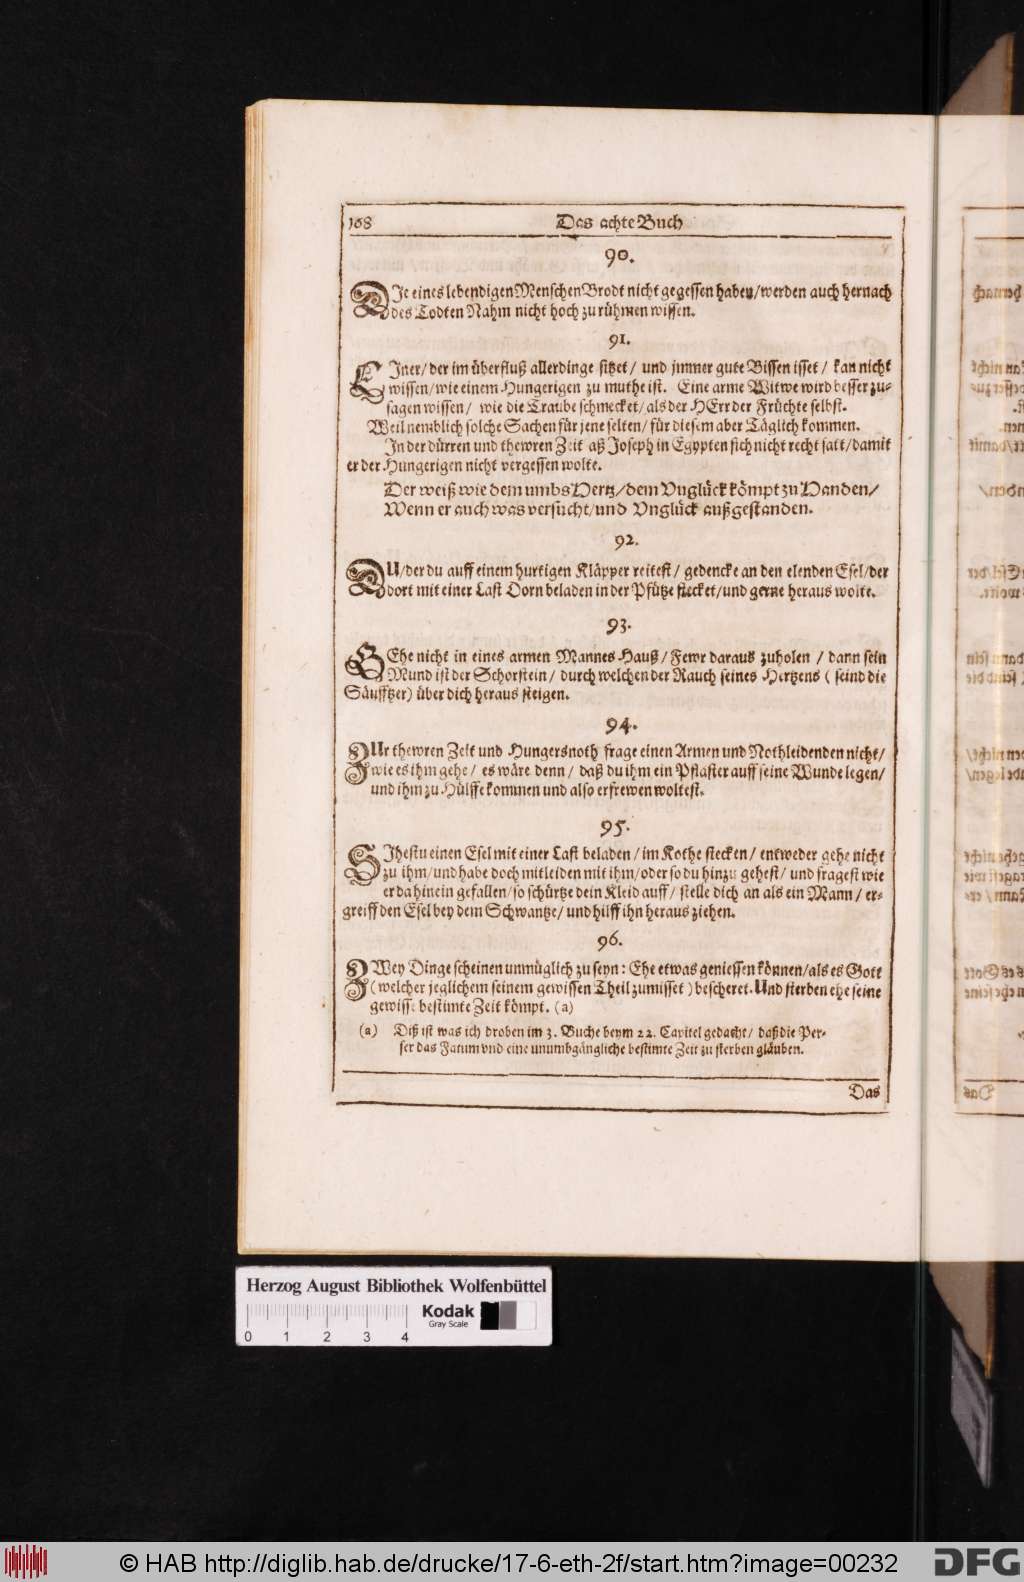 168
Das achte Buch
90.
DIe eines lebendigen Menschen Brodt nicht gegessen haben/werden auch hernach
des Todten Nahm nicht hoch zu rühmen wissen.
91.
EIner/ der im überfluß allerdinge sitzet/ und jmmer gute Bissen isset/ kan nicht
wissen/wie einem Hungerigen zu muthe ist. Eine arme Witwe wird besser zu-
sagen wissen/ wie die Traube schmecket/als der HErr der Früchte selbst.
Weil nemblich solche Sachen für jene selten/ für diesem aber Täglich kommen.
In der dürren und thewren Zeit aß Joseph in Egypten sich nicht recht satt/damit
er der Hungerigen nicht vergessen wolte.
Der weiß wie dem umbs Hertz/dem Vnglück kömpt zu Handen/
Wenn er auch was versucht/und Vnglück außgestanden.
92.
DU/der du auff einem hurtigen Kläpper reitest/ gedencke an den elenden Esel/der
dort mit einer Last Dorn beladen in der Pfütze stecket/und gerne heraus wolte.
93.
GEhe nicht in eines armen Mannes Hauß/ Fewr daraus zuholen / dann sein
Mund ist der Schorstein/ durch welchen der Rauch seines Hertzens ( seind die
Säufftzer) über dich heraus steigen.
94.
ZUr thewren Zeit und Hungersnoth frage einen Armen und Nothleidenden nicht/
wie es ihm gehe/ es wäre denn/ daß du ihm ein Pflaster auff seine Wunde legen/
und ihm zu Hülffe kommen und also erfrewen woltest.
95.
SIhestu einen Esel mit einer Last beladen/im Kothe stecken/ entweder gehe nicht
zu ihm/und habe doch mitleiden mit ihm/oder so du hinzu gehest/ und fragest wie
er da hinein gefallen/so schürtze dein Kleid auff/ stelle dich an als ein Mann/ er-
greiff den Esel bey dem Schwantze/und hilff ihn heraus ziehen.
96.
ZWey Dinge scheinen unmüglich zu seyn: Ehe etwas geniessen können/als es Gott
(welcher jeglichem seinem gewissen Theil zumisset) bescheret. Und sterben ehe seine
gewisse bestimte Zeit kömpt. (a)
(a) Diß ist was ich droben im 3. Buche beym 22. Capitel gedacht/ daß die Per-
ser das Fatum vnd eine unumbgängliche bestimte Zeit zu sterben gläuben.
Das
Herzog August Bibliothek Wolfenbüttel
Kodak
Gray Scale
0 1 2 3 4
© HAB http://diglib.hab.de/drucke/17-6-eth-2f/start.htm?image=00232
DFG